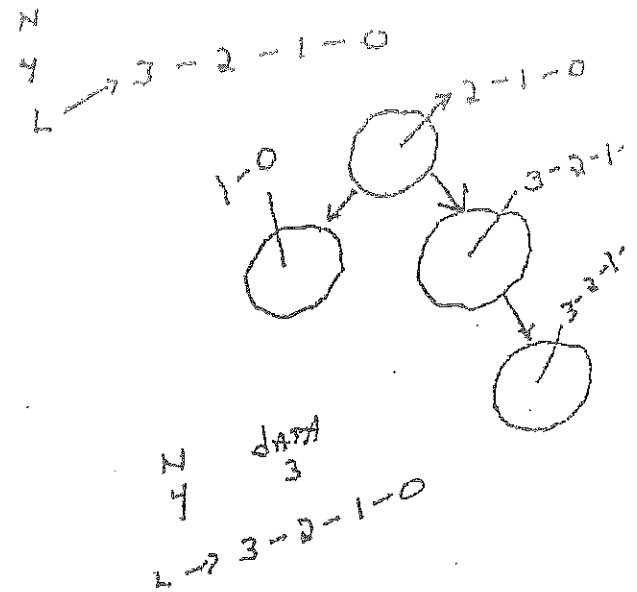 N
4
L → 3 - 2 - 1 - 0
2 - 1 - 0
1 - 0
3 - 2 - 1 -
3 - 2 - 1 -
N dATA
4 3
L → 3 - 2 - 1 - 0